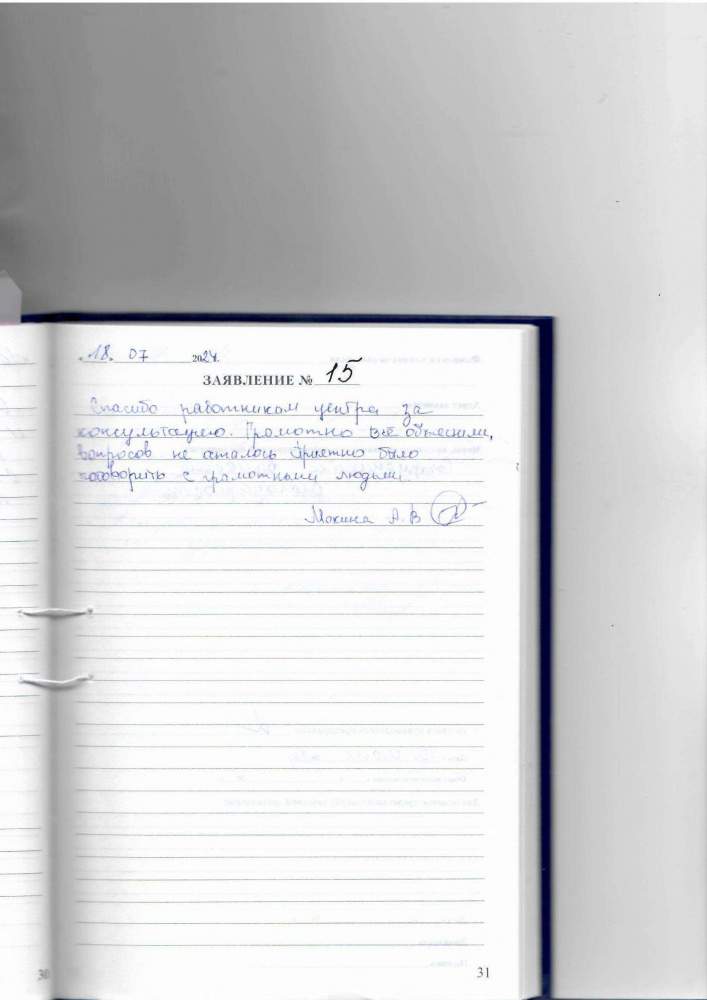 „18" 07 2024.
ЗАЯВЛЕНИЕ № 15
Спасибо работникам центра за
консультацию. Грамотно всё объяснили,
вопросов не осталось Приятно было
поговорить с грамотными людьми
Мокина А.В
30
31